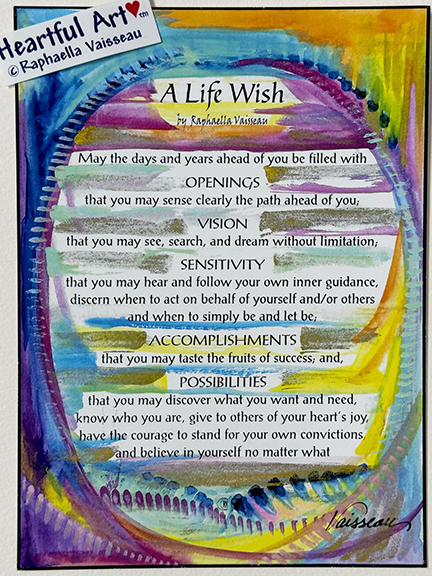 Heartful Art™
© Raphaella Vaisseau
A Life Wish
by Raphaella Vaisseau
May the days and years ahead of you be filled with
OPENINGS
that you may sense clearly the path ahead of you;
VISION
that you may see, search, and dream without limitation;
SENSITIVITY
that you may hear and follow your own inner guidance,
discern when to act on behalf of yourself and/or others
and when to simply be and let be;
ACCOMPLISHMENTS
that you may taste the fruits of success; and,
POSSIBILITIES
that you may discover what you want and need,
know who you are, give to others of your heart's joy,
have the courage to stand for your own convictions,
and believe in yourself no matter what
Vaisseau